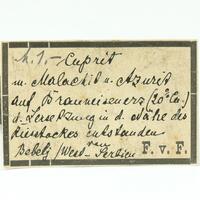 A. 1. – Cuprit
m. Malachit u. Azurit
auf Brauneisenerz (20% Cu.)
d. Zersetzung in d. Nähe des
Kiesstockes entstanden
von
Bebelj / West-Serbien
F. v. F.